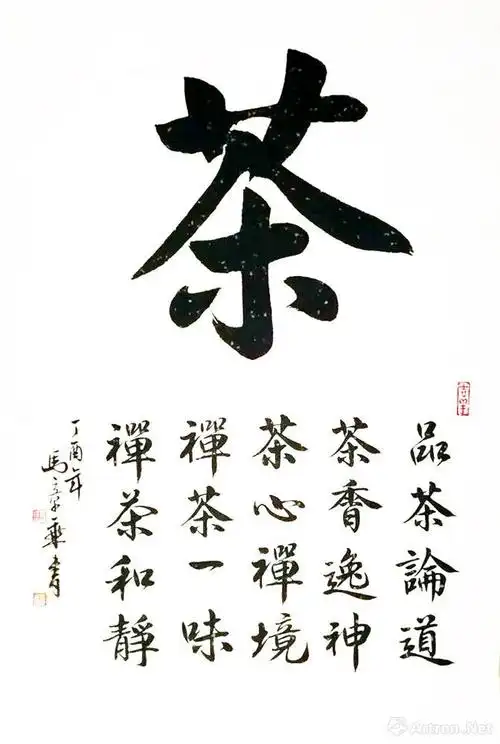 茶
品茶論道
茶香逸神
茶心禪境
禪茶一味
禪茶和靜
丁酉年
Artron.Net